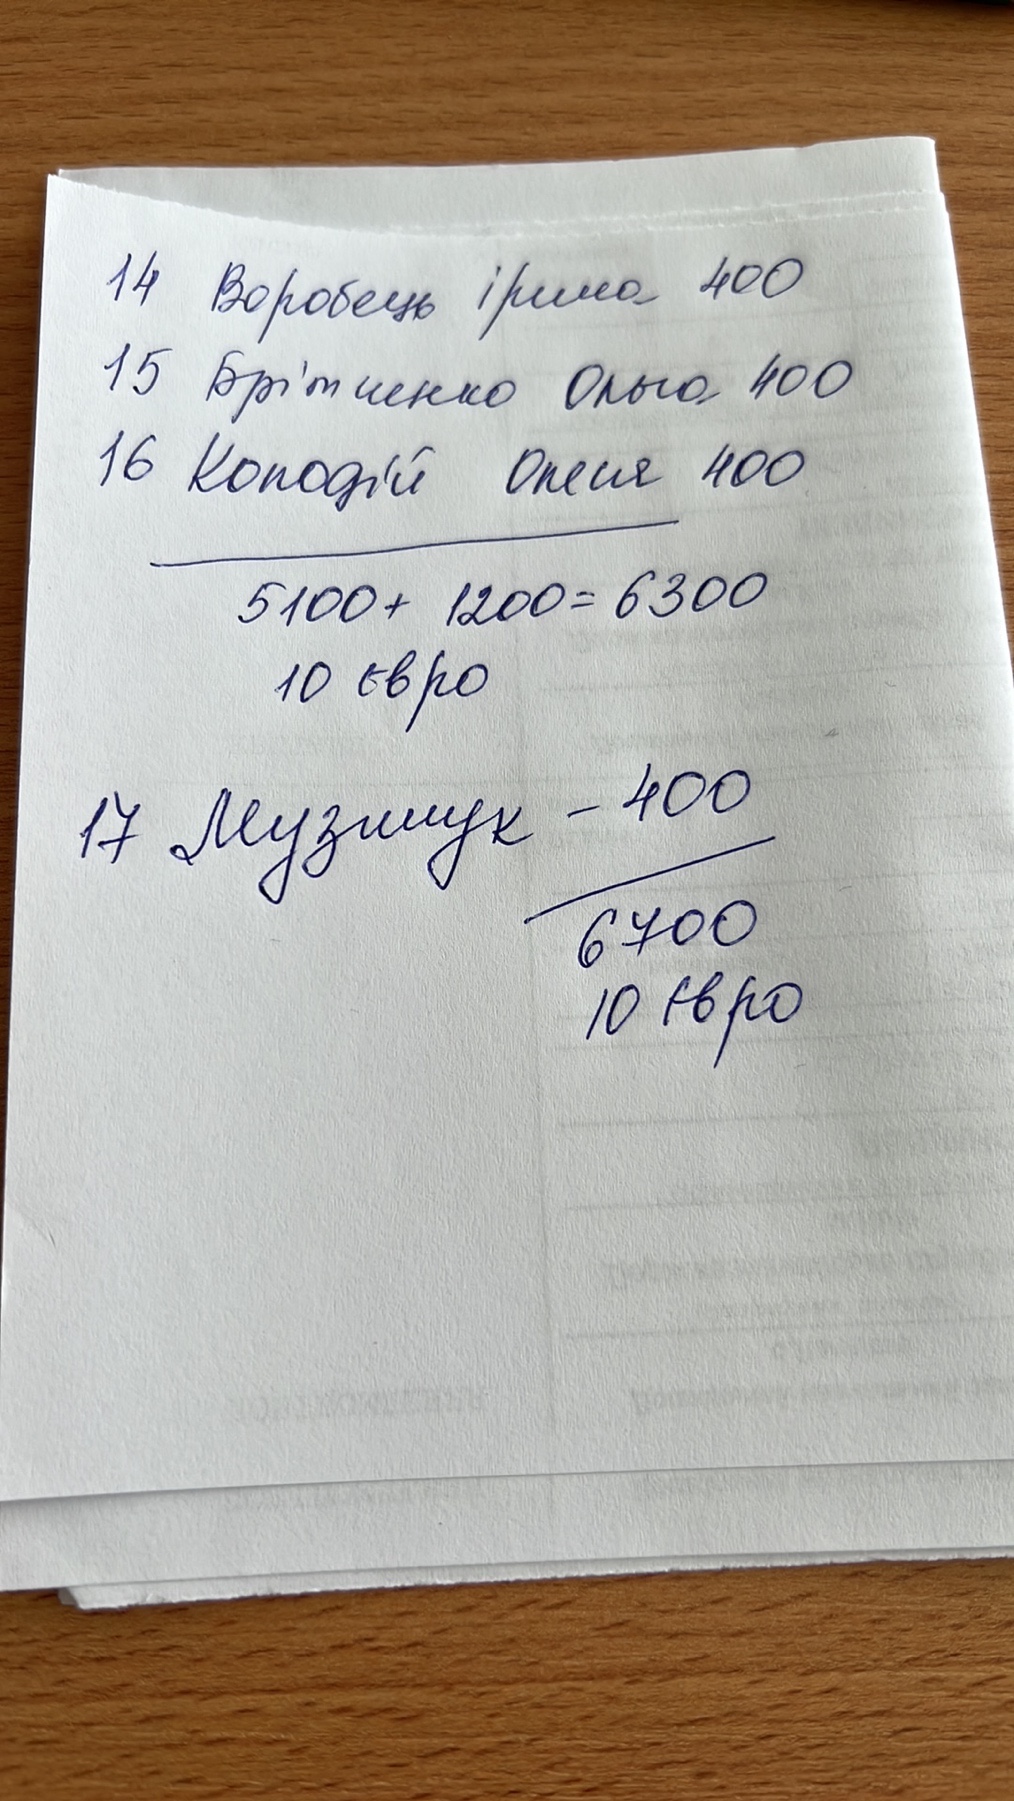 14 Воробець Ірина 400
15 Брітченко Ольга 400
16 Колодій Олеся 400
5100 + 1200 = 6300
10 Євро
17 Музичук - 400
6700
10 Євро